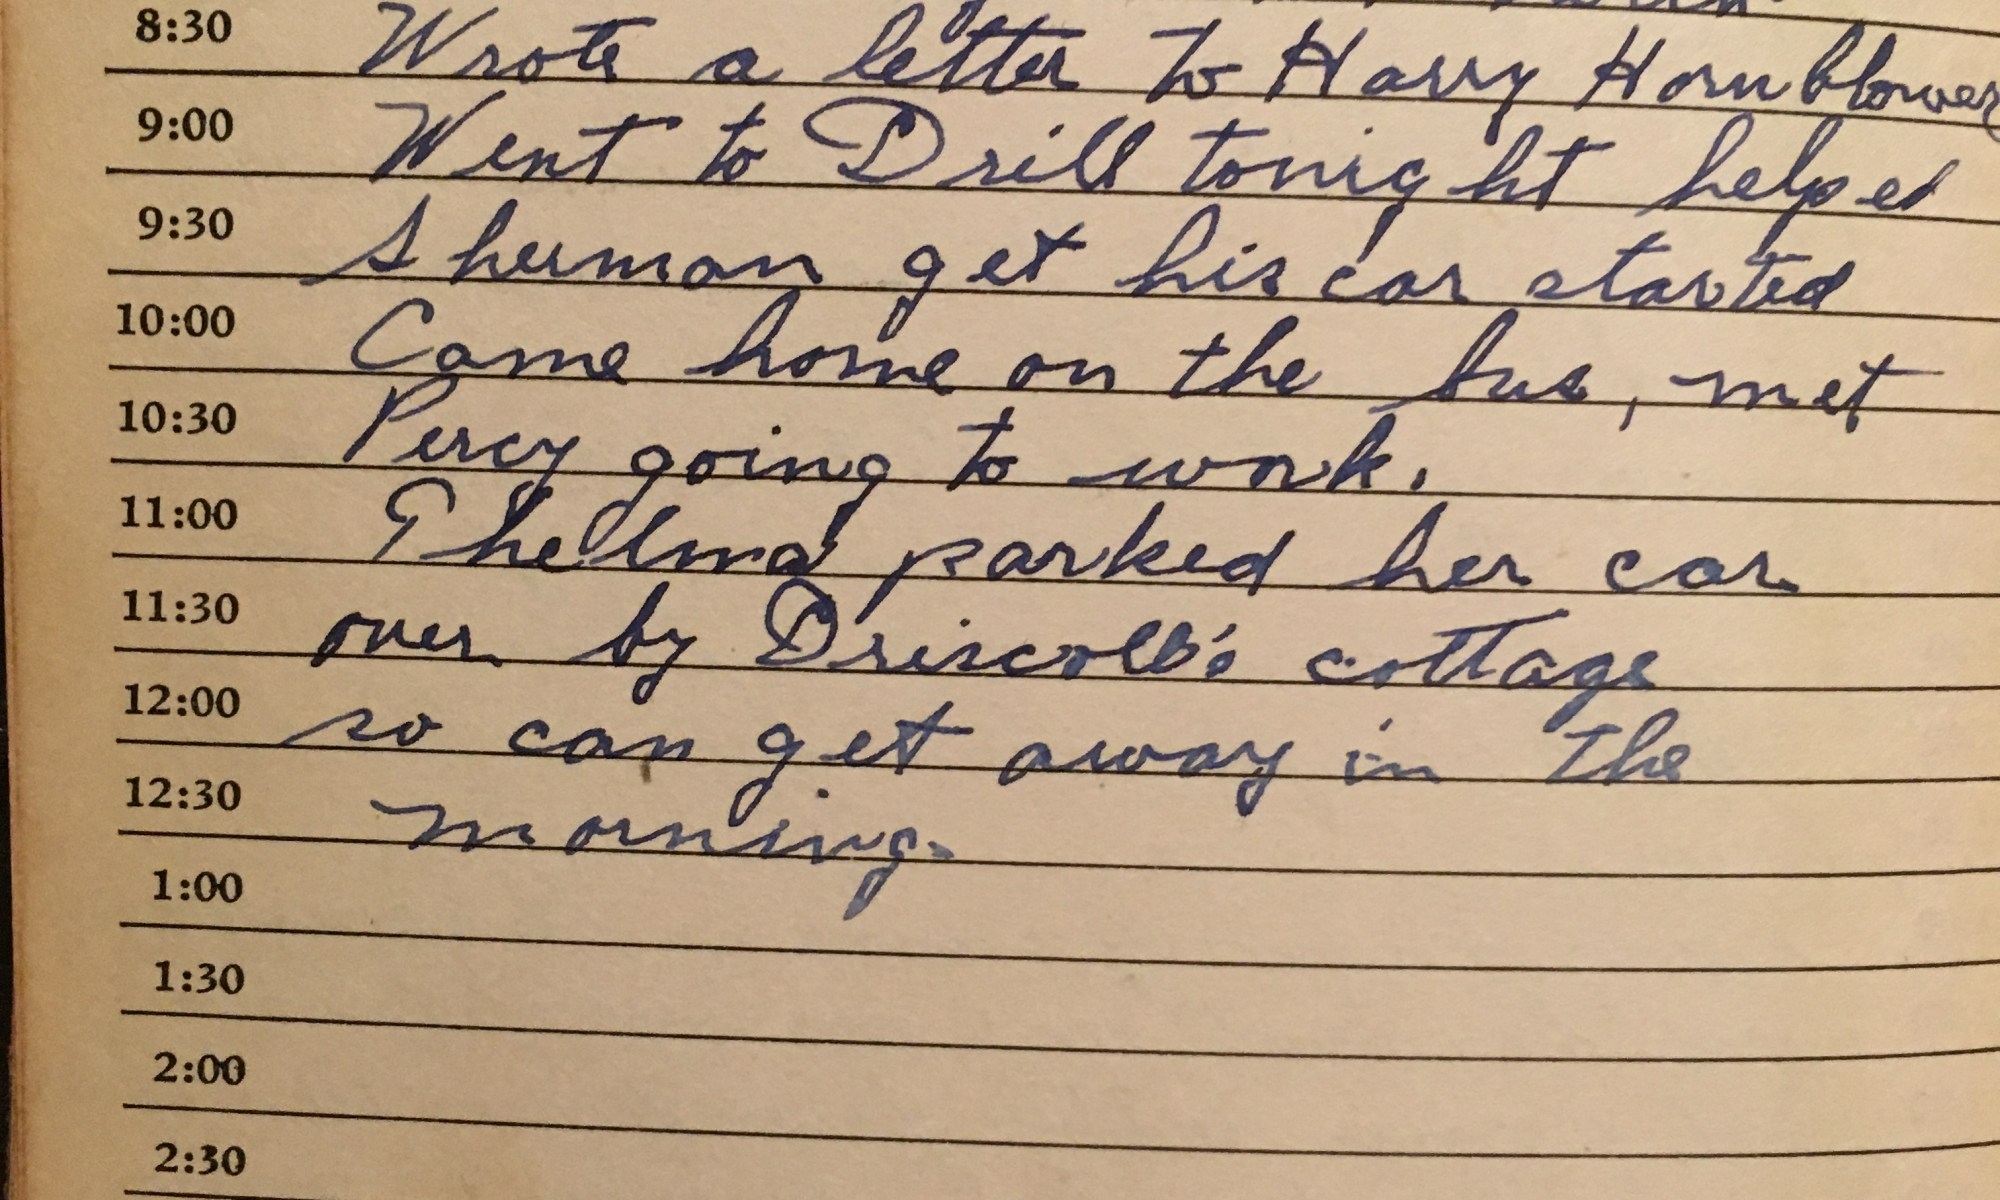 8:30 Wrote a letter to Harry Hornblower
9:00 Went to Drill tonight helped
9:30 Sherman get his car started
10:00 Came home on the bus, met
10:30 Percy going to work.
11:00 Thelma parked her car
11:30 over by Driscoll's cottage
12:00 so can get away in the
12:30 morning.
1:00
1:30
2:00
2:30